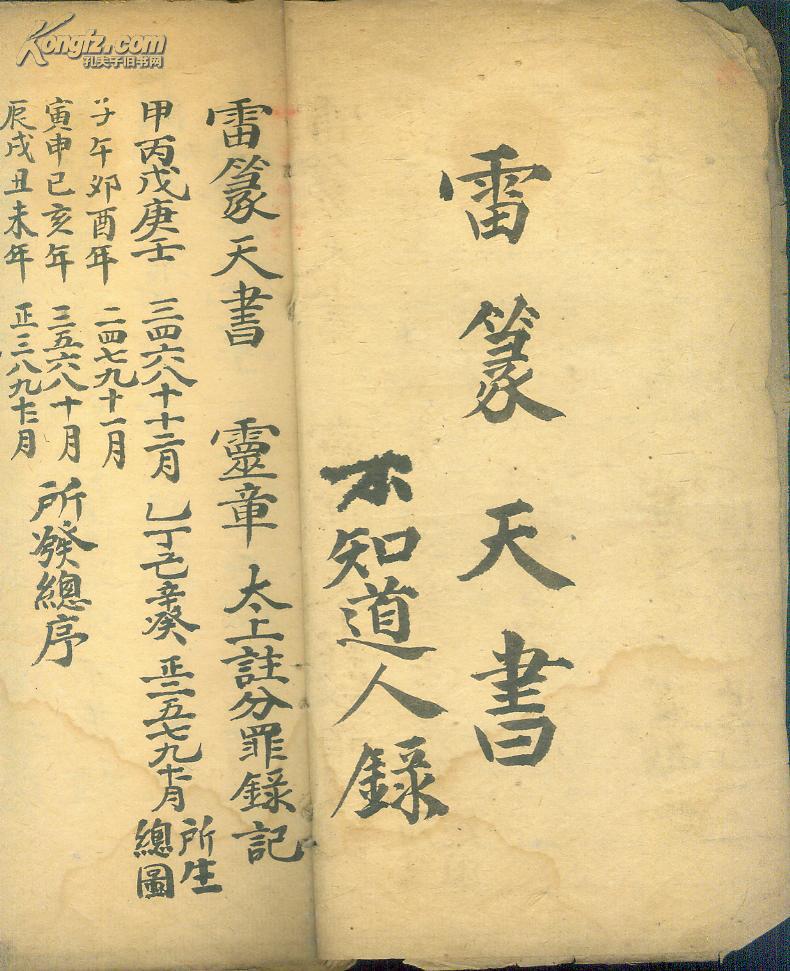 Kongfz.com
孔夫子旧书网
雷篆天書
不知道人録
雷篆天書 靈章 太上註分罪錄記
甲丙戊庚壬 三四六八十十二月 乙丁己辛癸 正二五七九十一月 所生總圖
子午卯酉年 二四七九十一月
寅申巳亥年 三五六八十月
辰戌丑未年 正三八九十二月
所發總序